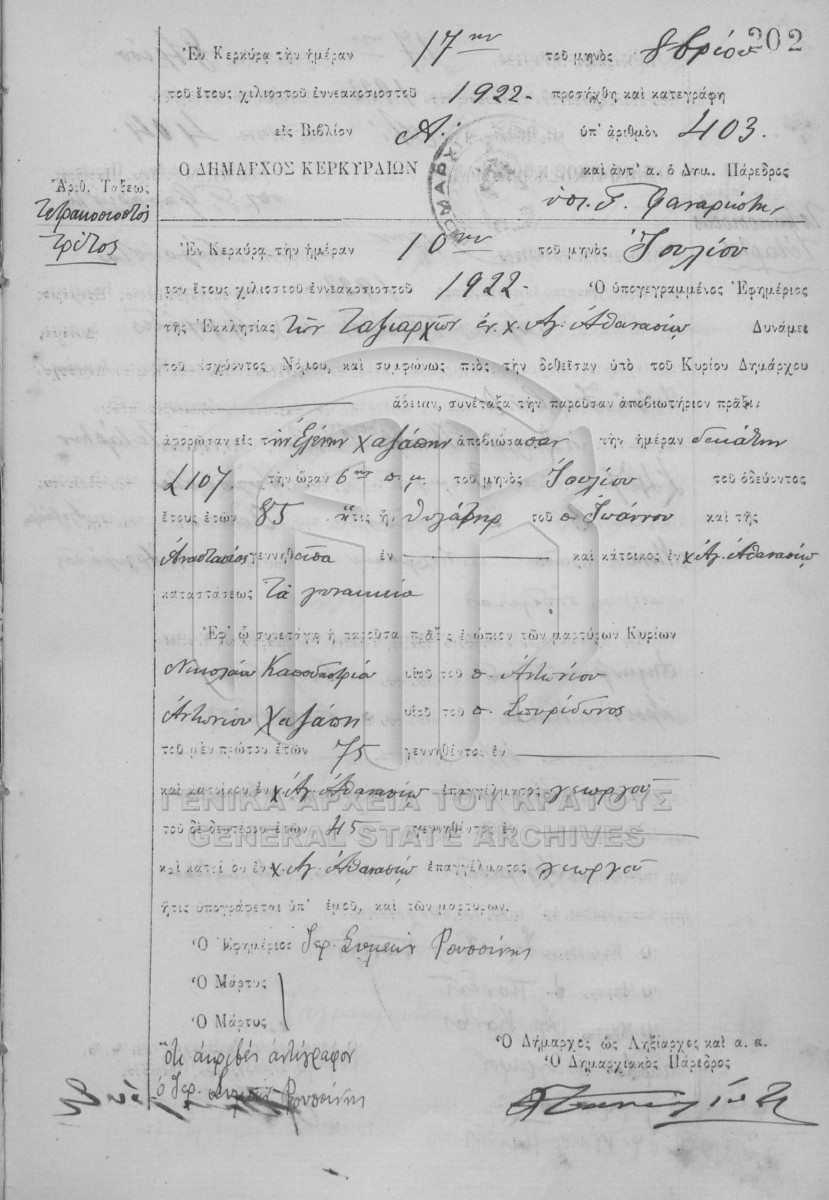 202
Ἐν Κερκύρᾳ τὴν ἡμέραν 17ην τοῦ μηνὸς 8βρίου
τοῦ ἔτους χιλιοστοῦ ἐννεακοσιοστοῦ 1922- προσήχθη καὶ κατεγράφη
εἰς Βιβλίον Α. ὑπ' ἀριθμὸν 403.
Ο ΔΗΜΑΡΧΟΣ ΚΕΡΚΥΡΑΙΩΝ καὶ ἀντ' α. ὁ Δημ. Πάρεδρος
Ἀριθ. Τάξεως
Τετρακοσιοστός
Τρίτος
Ἐν Κερκύρᾳ τὴν ἡμέραν 10ην τοῦ μηνὸς Ἰουλίου
τοῦ ἔτους χιλιοστοῦ ἐννεακοσιοστοῦ 1922- Ὁ ὑπογεγραμμένος Ἐφημέριος
τῆς Ἐκκλησίας τῶν Ταξιαρχῶν ἐν χ. Αγ. Ἀθανασίῳ Δυνάμει
τοῦ ἰσχύοντος Νόμου, καὶ συμφώνως πρὸς τὴν δοθεῖσαν ὑπὸ τοῦ Κυρίου Δημάρχου
ἄδειαν, συνέταξα τὴν παροῦσαν ἀποβιωτήριον πρᾶξιν
ἀφορῶσαν εἰς τὴν Ἑλένην Χαζάπη ἀποβιώσασαν τὴν ἡμέραν δεκάτην
[10]. τὴν ὥραν 6ην π. μ. τοῦ μηνὸς Ἰουλίου τοῦ ὁδεύοντος
ἔτους ἐτῶν 85 ἥτις ἦν θυγάτηρ τοῦ π. Ἰωάννου καὶ τῆς
Ἀναστασίας γεννηθεῖσα ἐν καὶ κάτοικος ἐν χ. Ἁγ. Ἀθανασίῳ
καταστάσεως τὰ γυναικεῖα
Ἐφ' ᾧ συνετάγη ἡ παροῦσα πρᾶξις ἐνώπιον τῶν μαρτύρων Κυρίων
Νικολάου Καποδιστρίου υἱοῦ τοῦ π. Ἀντωνίου
Ἀντωνίου Χαζάπη υἱοῦ τοῦ π. Σπυρίδωνος
τοῦ μὲν πρώτου ἐτῶν 75 γεννηθέντος ἐν
καὶ κατοίκου ἐν χ. Ἁγ. Ἀθανασίῳ ἐπαγγέλματος γεωργοῦ
ΓΕΝΙΚΑ ΑΡΧΕΙΑ ΤΟΥ ΚΡΑΤΟΥΣ
τοῦ δὲ δευτέρου ἐτῶν 45 γεννηθέντος ἐν
GENERAL STATE ARCHIVES
καὶ κατοίκου ἐν χ. Ἁγ. Ἀθανασίῳ ἐπαγγέλματος γεωργοῦ
ἥτις ὑπογράφεται ὑπ' ἐμοῦ, καὶ τῶν μαρτύρων.
Ὁ Ἐφημέριος Ἱερ. Συμεὼν
Ὁ Μάρτυς
Ὁ Μάρτυς
Ὅτι ἀκριβὲς ἀντίγραφον
ὁ Ἱερ. Συμεὼν
Ὁ Δήμαρχος ὡς Ληξίαρχος καὶ α. α.
Ὁ Δημαρχιακὸς Πάρεδρος